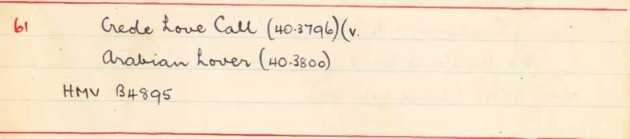 61 Creole Love Call (40-3796)(v.
Arabian Lover (40-3800)
HMV B4895